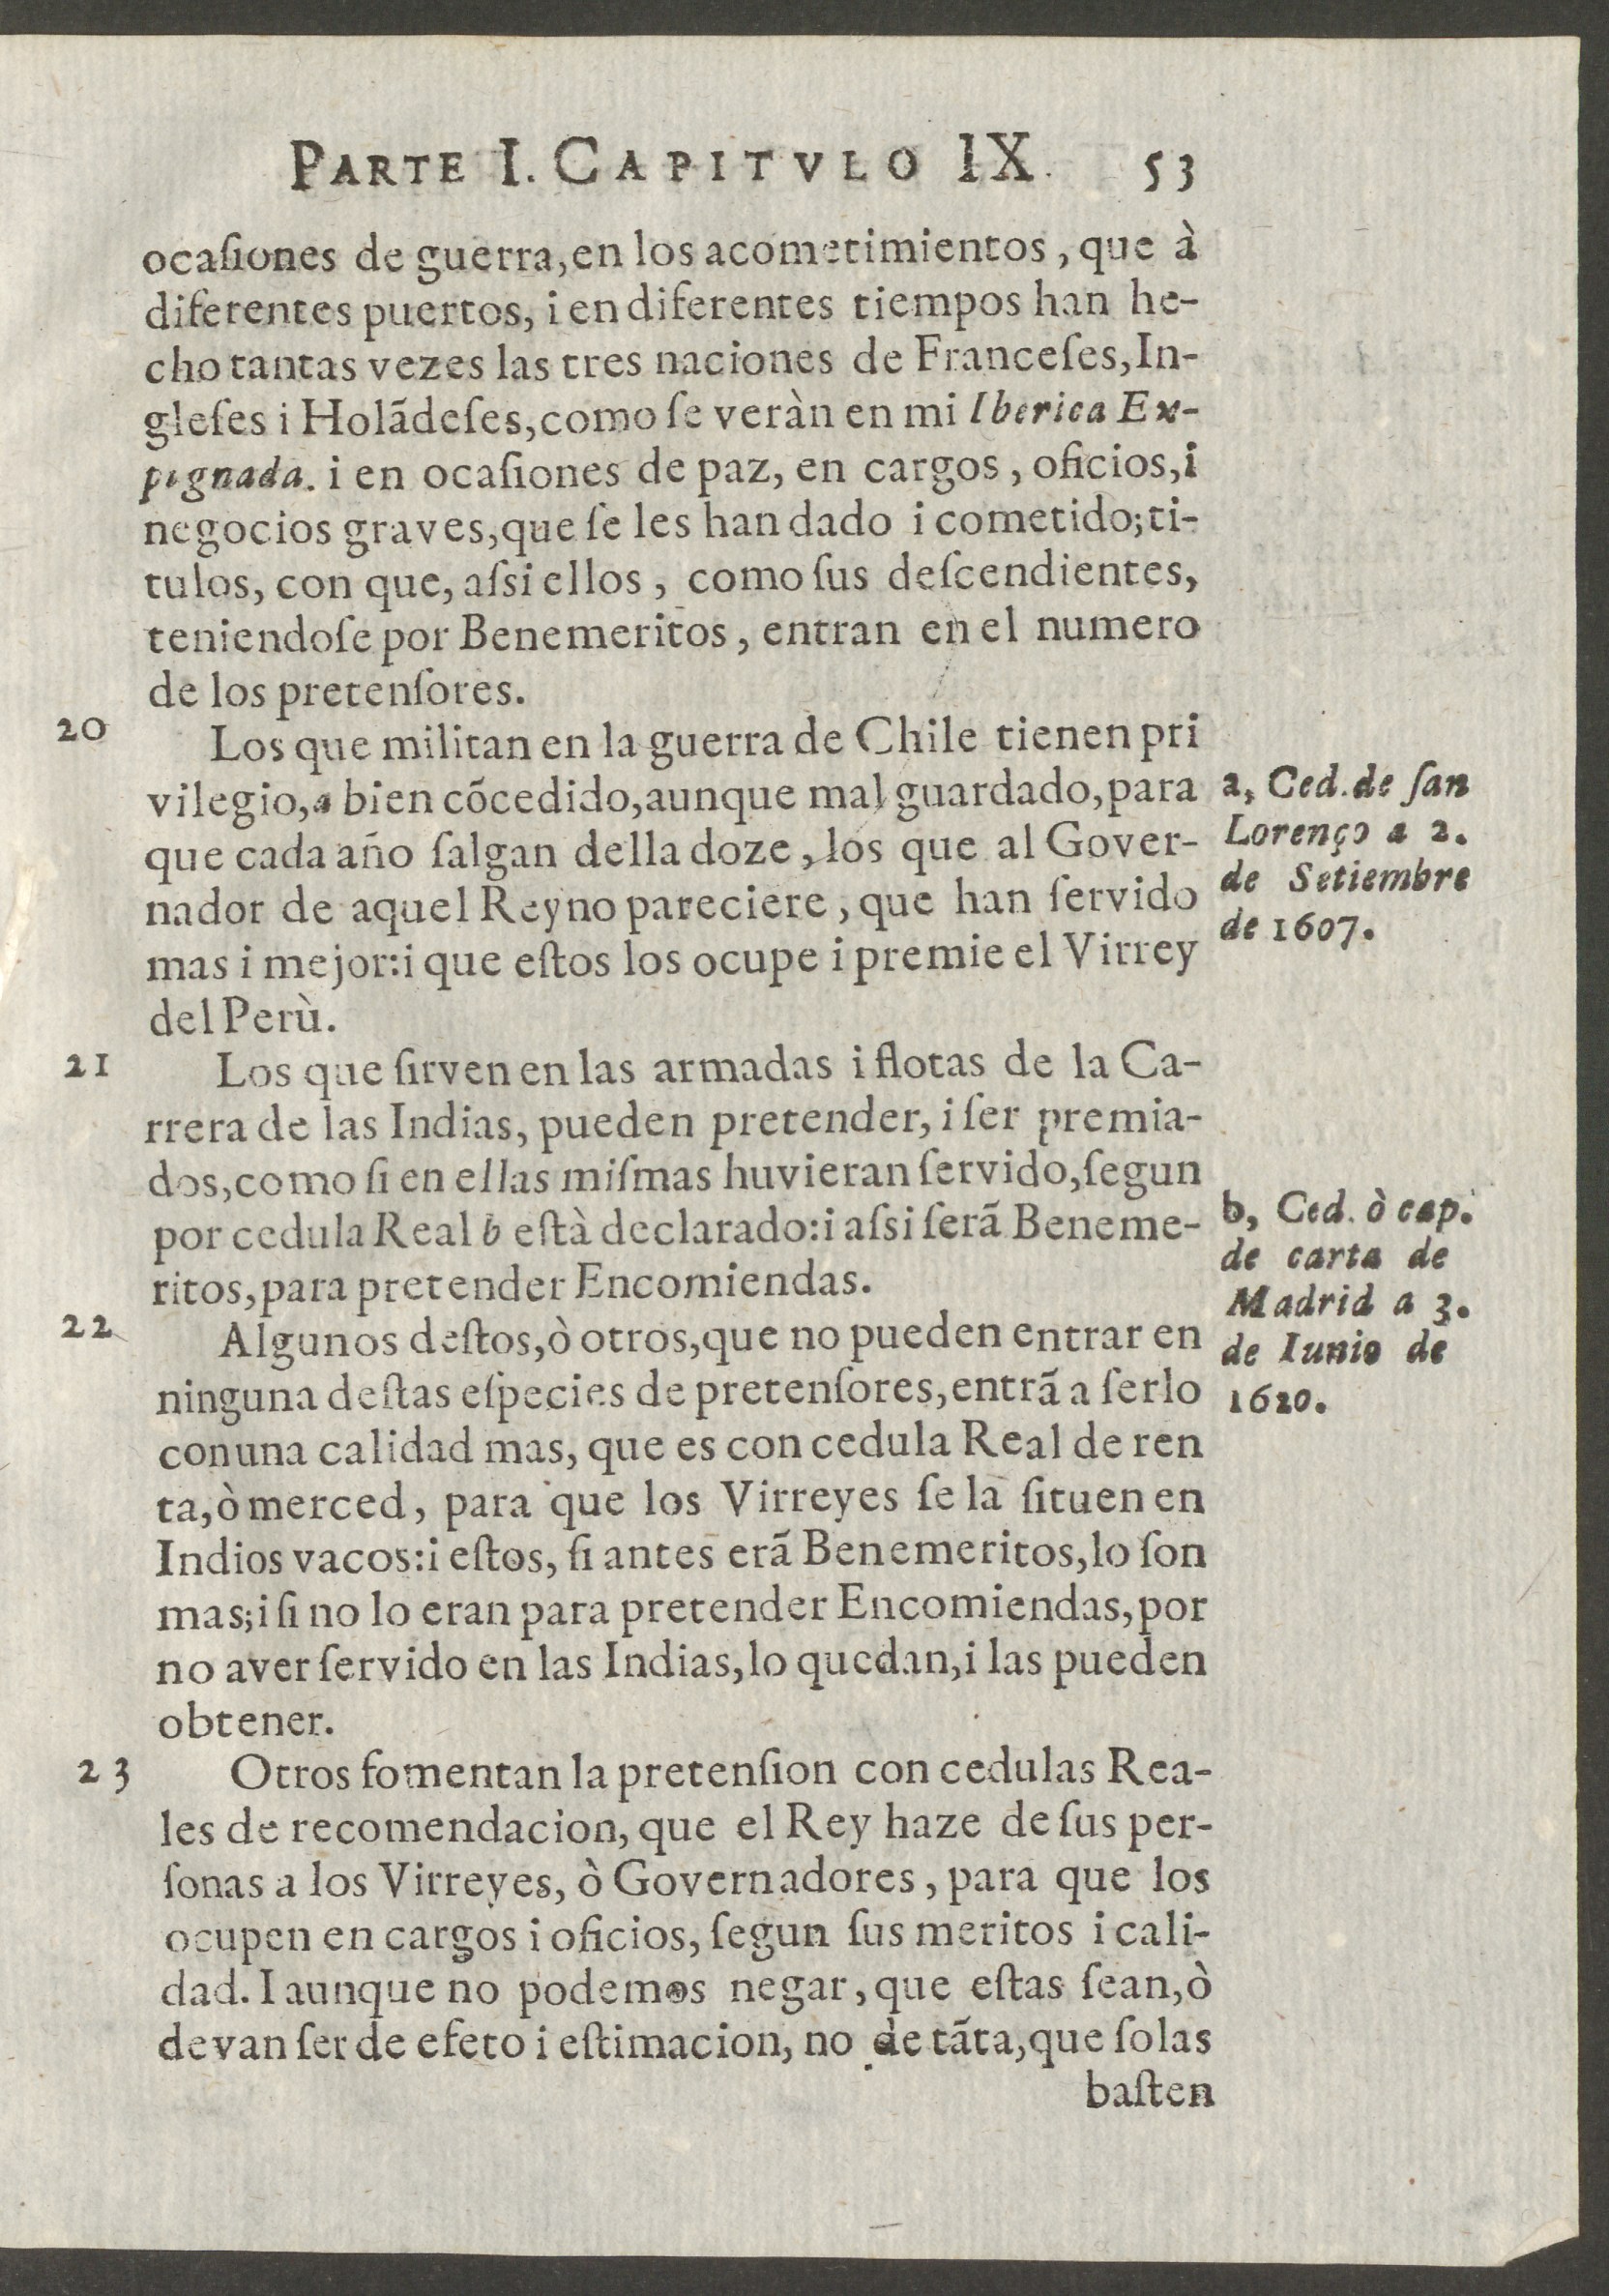 PARTE I. CAPITVLO IX. 53
ocaſiones de guerra, en los acometimientos, que à
diferentes puertos, i en diferentes tiempos han he-
cho tantas vezes las tres naciones de Franceſes, In-
gleſes i Holãdeſes, como ſe veràn en mi Iberica Ex-
pugnada. i en ocaſiones de paz, en cargos, oficios, i
negocios graves, que ſe les han dado i cometido; ti-
tulos, con que, aſsi ellos, como ſus deſcendientes,
teniendoſe por Benemeritos, entran en el numero
de los pretenſores.
20 Los que militan en la guerra de Chile tienen pri
vilegio, a bien cõcedido, aunque mal guardado, para
que cada año ſalgan della doze, los que al Gover-
nador de aquel Reyno pareciere, que han ſervido
mas i mejor: i que eſtos los ocupe i premie el Virrey
del Perù.
a, Ced. de ſan
Lorenço a 2.
de Setiembre
de 1607.
21 Los que ſirven en las armadas i flotas de la Ca-
rrera de las Indias, pueden pretender, i ſer premia-
dos, como ſi en ellas miſmas huvieran ſervido, ſegun
por cedula Real b eſtà declarado: i aſsi ſerã Beneme-
ritos, para pretender Encomiendas.
b, Ced. ò cap.
de carta de
Madrid a 3.
de Iunio de
1620.
22 Algunos deſtos, ò otros, que no pueden entrar en
ninguna deſtas eſpecies de pretenſores, entrã a ſerlo
con una calidad mas, que es con cedula Real de ren
ta, ò merced, para que los Virreyes ſe la ſituen en
Indios vacos: i eſtos, ſi antes erã Benemeritos, lo ſon
mas; i ſi no lo eran para pretender Encomiendas, por
no aver ſervido en las Indias, lo quedan, i las pueden
obtener.
23 Otros fomentan la pretenſion con cedulas Rea-
les de recomendacion, que el Rey haze de ſus per-
ſonas a los Virreyes, ò Governadores, para que los
ocupen en cargos i oficios, ſegun ſus meritos i cali-
dad. I aunque no podemos negar, que eſtas ſean, ò
devan ſer de efeto i eſtimacion, no de tãta, que ſolas
baſten